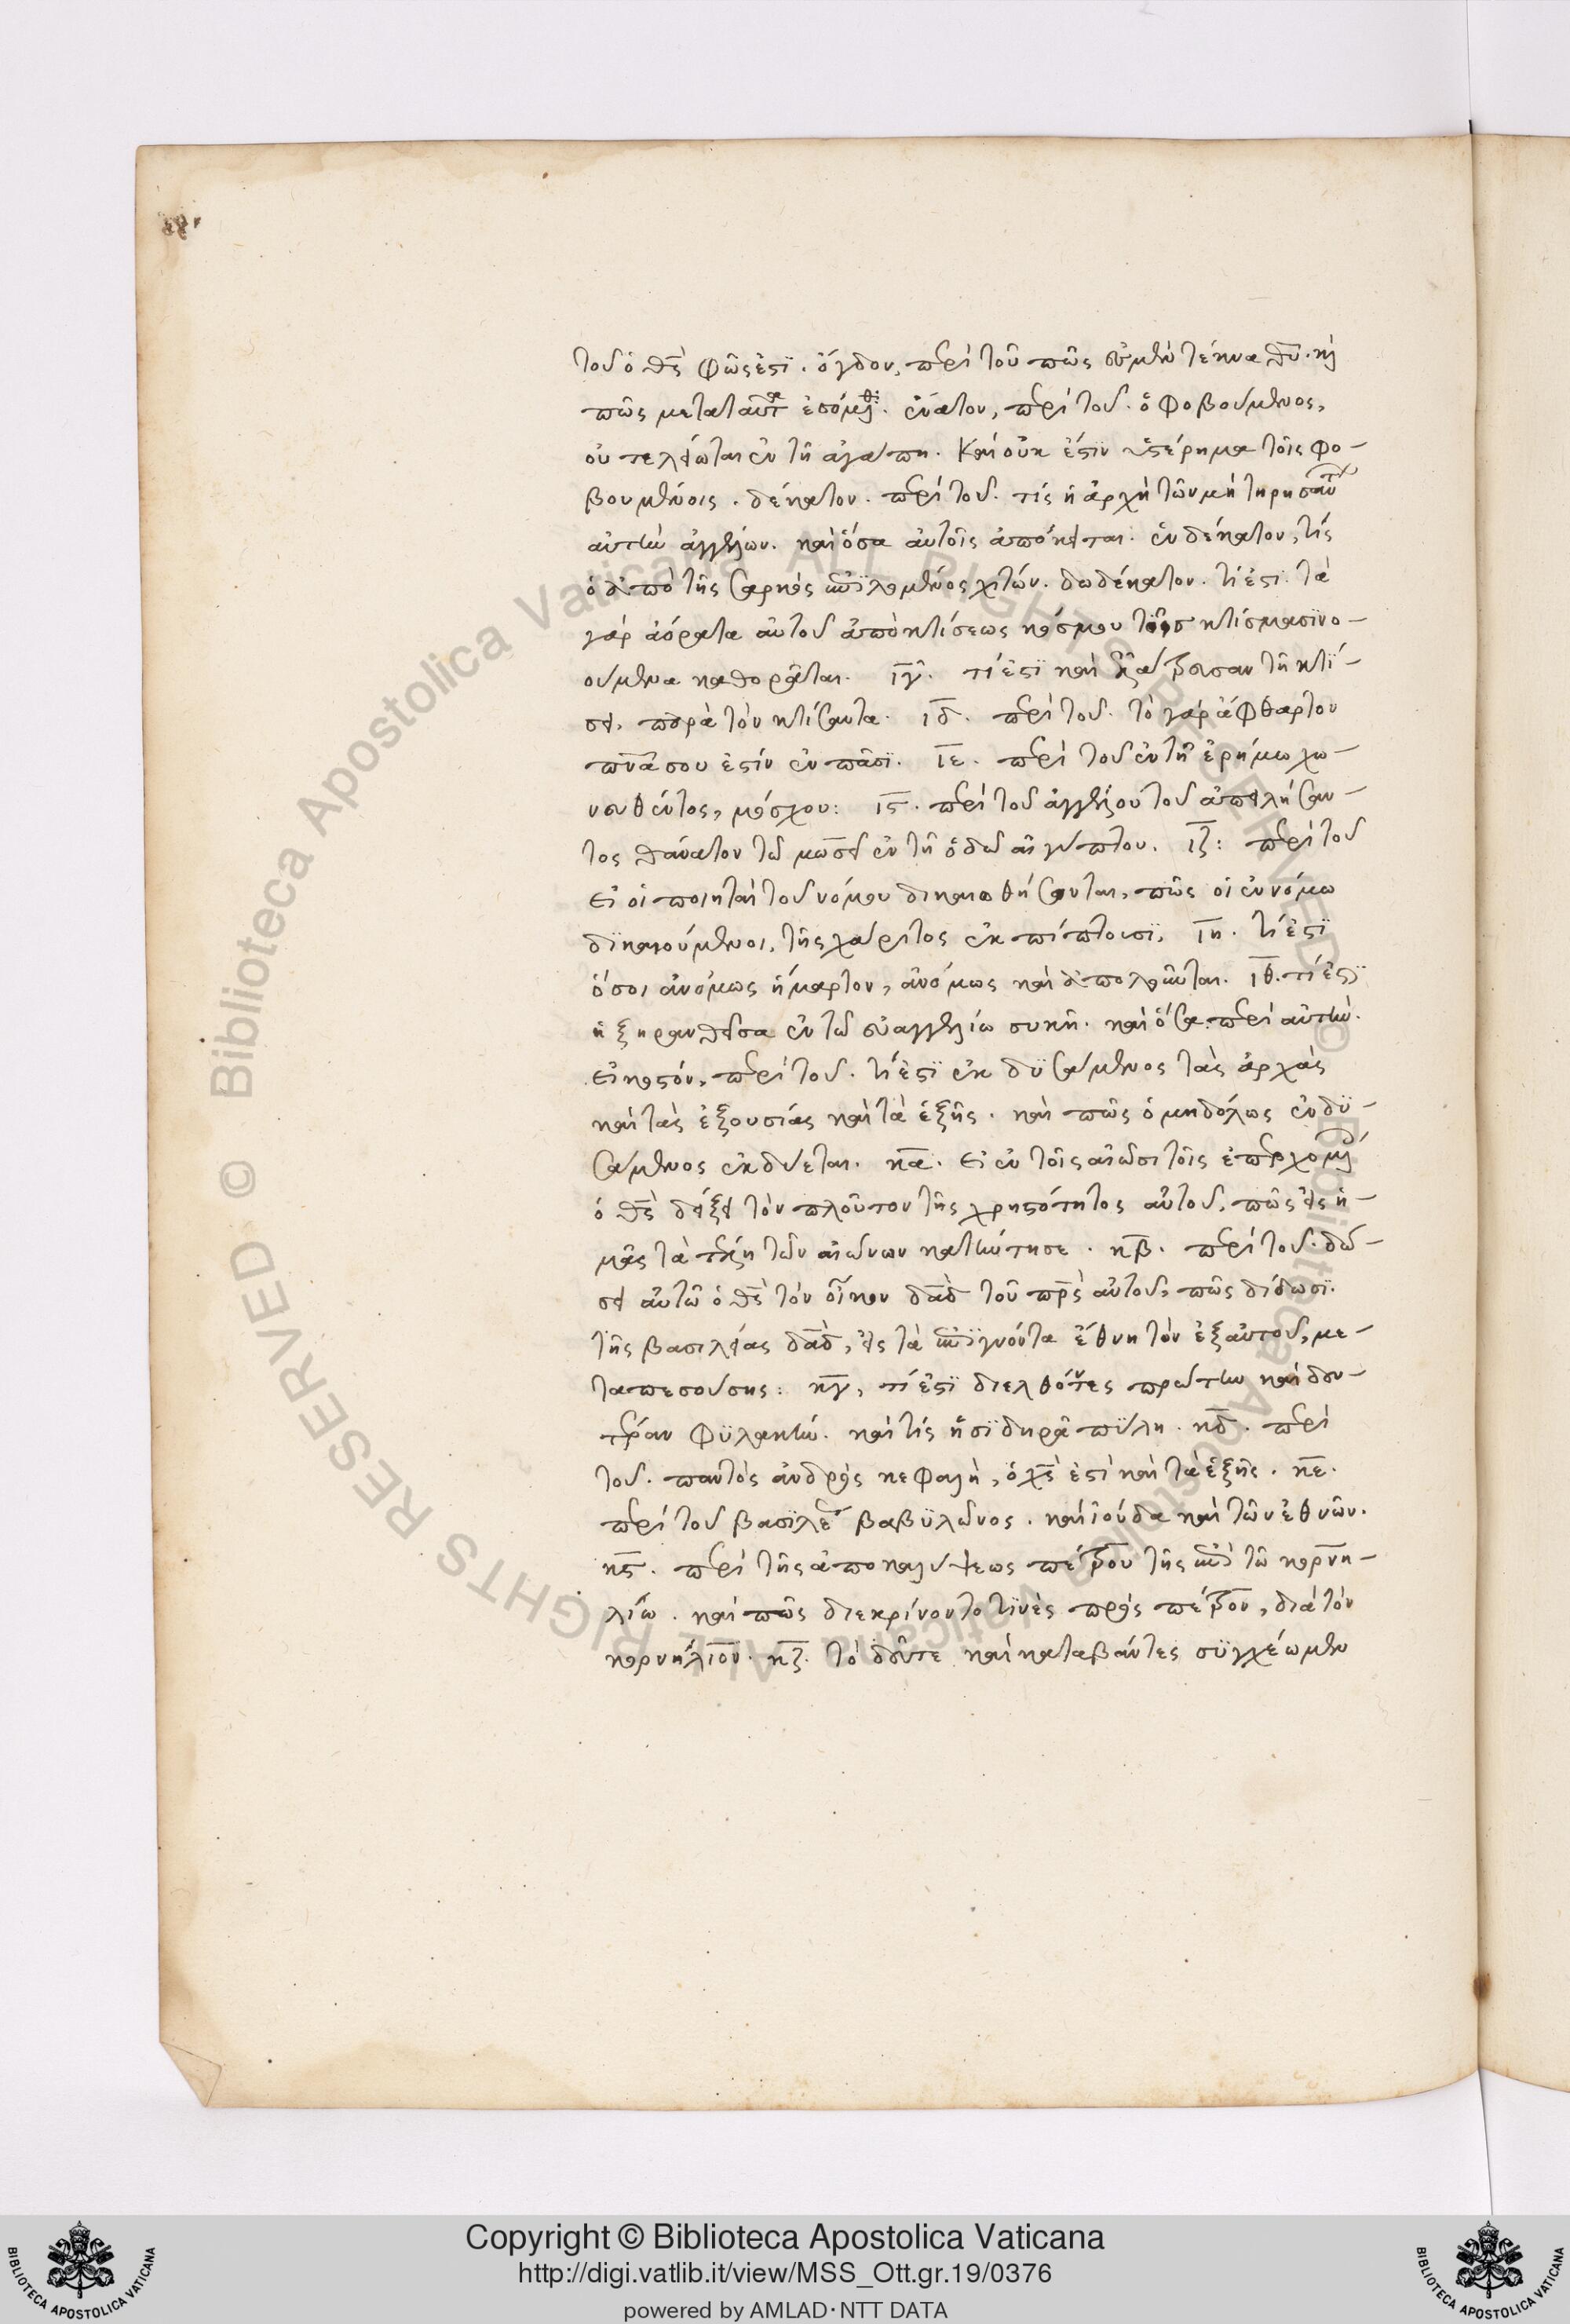 τοῦ ὁ θς φῶς ἐστὶ. ὄγδον, περὶ τοῦ πῶς ἐσμὲν τέκνα θυ. καὶ
πῶς μετὰ ταῦτα ἐσόμεθα. ἔνατον, περὶ τοῦ. ὁ φοβούμενος,
οὐ τελείωται ἐν τῆ ἀγάπη. Καὶ οὐκ ἔστιν ὑστέρημα τοῖς φο-
βουμένοις. δέκατον. περὶ τοῦ. τίς ἡ ἀρχὴ τῶν μὴ τηρησάντων
αὐτὴν ἀγγέλων. καὶ ὅσα αὐτοῖς ἀπόκειται. ἑνδέκατον, τίς
ὁ ἀπὸ τῆς σαρκὸς ἐσπιλωμένος χιτών. δωδέκατον. τί ἐστι τὰ
γὰρ ἀόρατα αὐτοῦ ἀπὸ κτίσεως κόσμου τοῖς κτίσμασι νο-
ούμενα καθορᾶται. ιγ. τί ἐστὶ καὶ ἐλάτρευσαν τῆ κτί-
σει, παρὰ τὸν κτίσαντα. ιδ. περὶ τοῦ. τὸ γὰρ ἄφθαρτον
πνα σου ἐστὶν ἐν πᾶσι. ιε. περὶ τοῦ ἐν τῆ ἐρήμω χω-
νευθέντος, μόσχου: ις. περὶ τοῦ ἀγγέλου τοῦ ἀπειλήσαν-
τος θάνατον τῶ μωσεῖ ἐν τῆ ὁδῶ αἰγύπτου. ιζ: περὶ τοῦ
εἰ οἱ ποιηταὶ τοῦ νόμου δικαιωθήσονται, πῶς οἱ ἐν νόμω
δικαιούμενοι, τῆς χάριτος ἐκπίπτουσι, ιη. τί ἐστὶ
ὅσοι ἀνόμως ἥμαρτον, ἀνόμως καὶ ἀπολοῦνται. ιθ. τί ἐστὶ
ἡ ξηρανθεῖσα ἐν τῶ εὐαγγελίω συκῆ. καὶ ὅσα περὶ αὐτήν.
εἰκοστόν, περὶ τοῦ. τί ἐστὶ ἐκδυσάμενος τὰς ἀρχὰς
καὶ τὰς ἐξουσίας καὶ τὰ ἑξῆς. καὶ πῶς ὁ μηδόλως ἐνδυ-
σάμενος ἐκδύεται. κα. εἰ ἐν τοῖς αἰῶσι τοῖς ἐπερχομένοις
ὁ θς δείξει τὸν πλοῦτον τῆς χρηστότητος αὐτοῦ, πῶς εἰς ἡ-
μᾶς τὰ τέλη τῶν αἰώνων κατήντησε. κβ. περὶ τοῦ. δώ-
σει αὐτῶ ὁ θς τὸν οἶκον δαδ τοῦ πρς αὐτοῦ, πῶς δίδωσι.
τῆς βασιλείας δαδ, εἰς τὰ ἔθνη τὸν ἐξ αὐτοῦ, με-
ταπεσούσης: κγ, τί ἐστὶ διελθόντες πρώτην καὶ δευ-
τέραν φυλακὴν. καὶ τίς ἡ σιδηρᾶ πύλη. κδ. περὶ
τοῦ. παντὸς ἀνδρὸς κεφαλὴ, ὁ χς ἐστὶ καὶ τὰ ἑξῆς. κε.
περὶ τοῦ βασιλέως βαβυλῶνος. καὶ ἰούδα καὶ τῶν ἐθνῶν.
κς. περὶ τῆς ἀποκαλύψεως πέτρου τῆς ἐπὶ τῶ κορνη-
λίω. καὶ πῶς διεκρίνοντο τινὲς πρὸς πέτρον, διὰ τὸν
κορνήλιον. κζ. τὸ δεῦτε καὶ καταβάντες συγχέωμεν
Copyright © Biblioteca Apostolica Vaticana
http://digi.vatlib.it/view/MSS_Ott.gr.19/0376
powered by AMLAD·NTT DATA